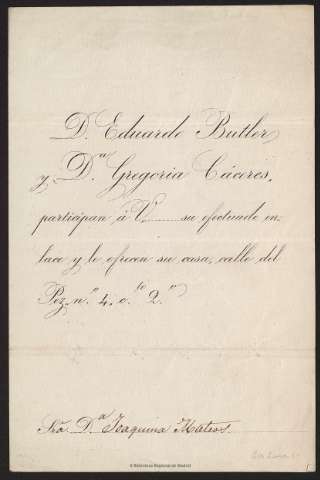 D. Eduardo Butler
y D.ª Gregoria Cáceres,
participan á V. ........ su efectuado en-
lace y le ofrecen su casa, calle del
Pez, n.º 4, c.to 2.º
Sra. D.ª Joaquina Mateos.